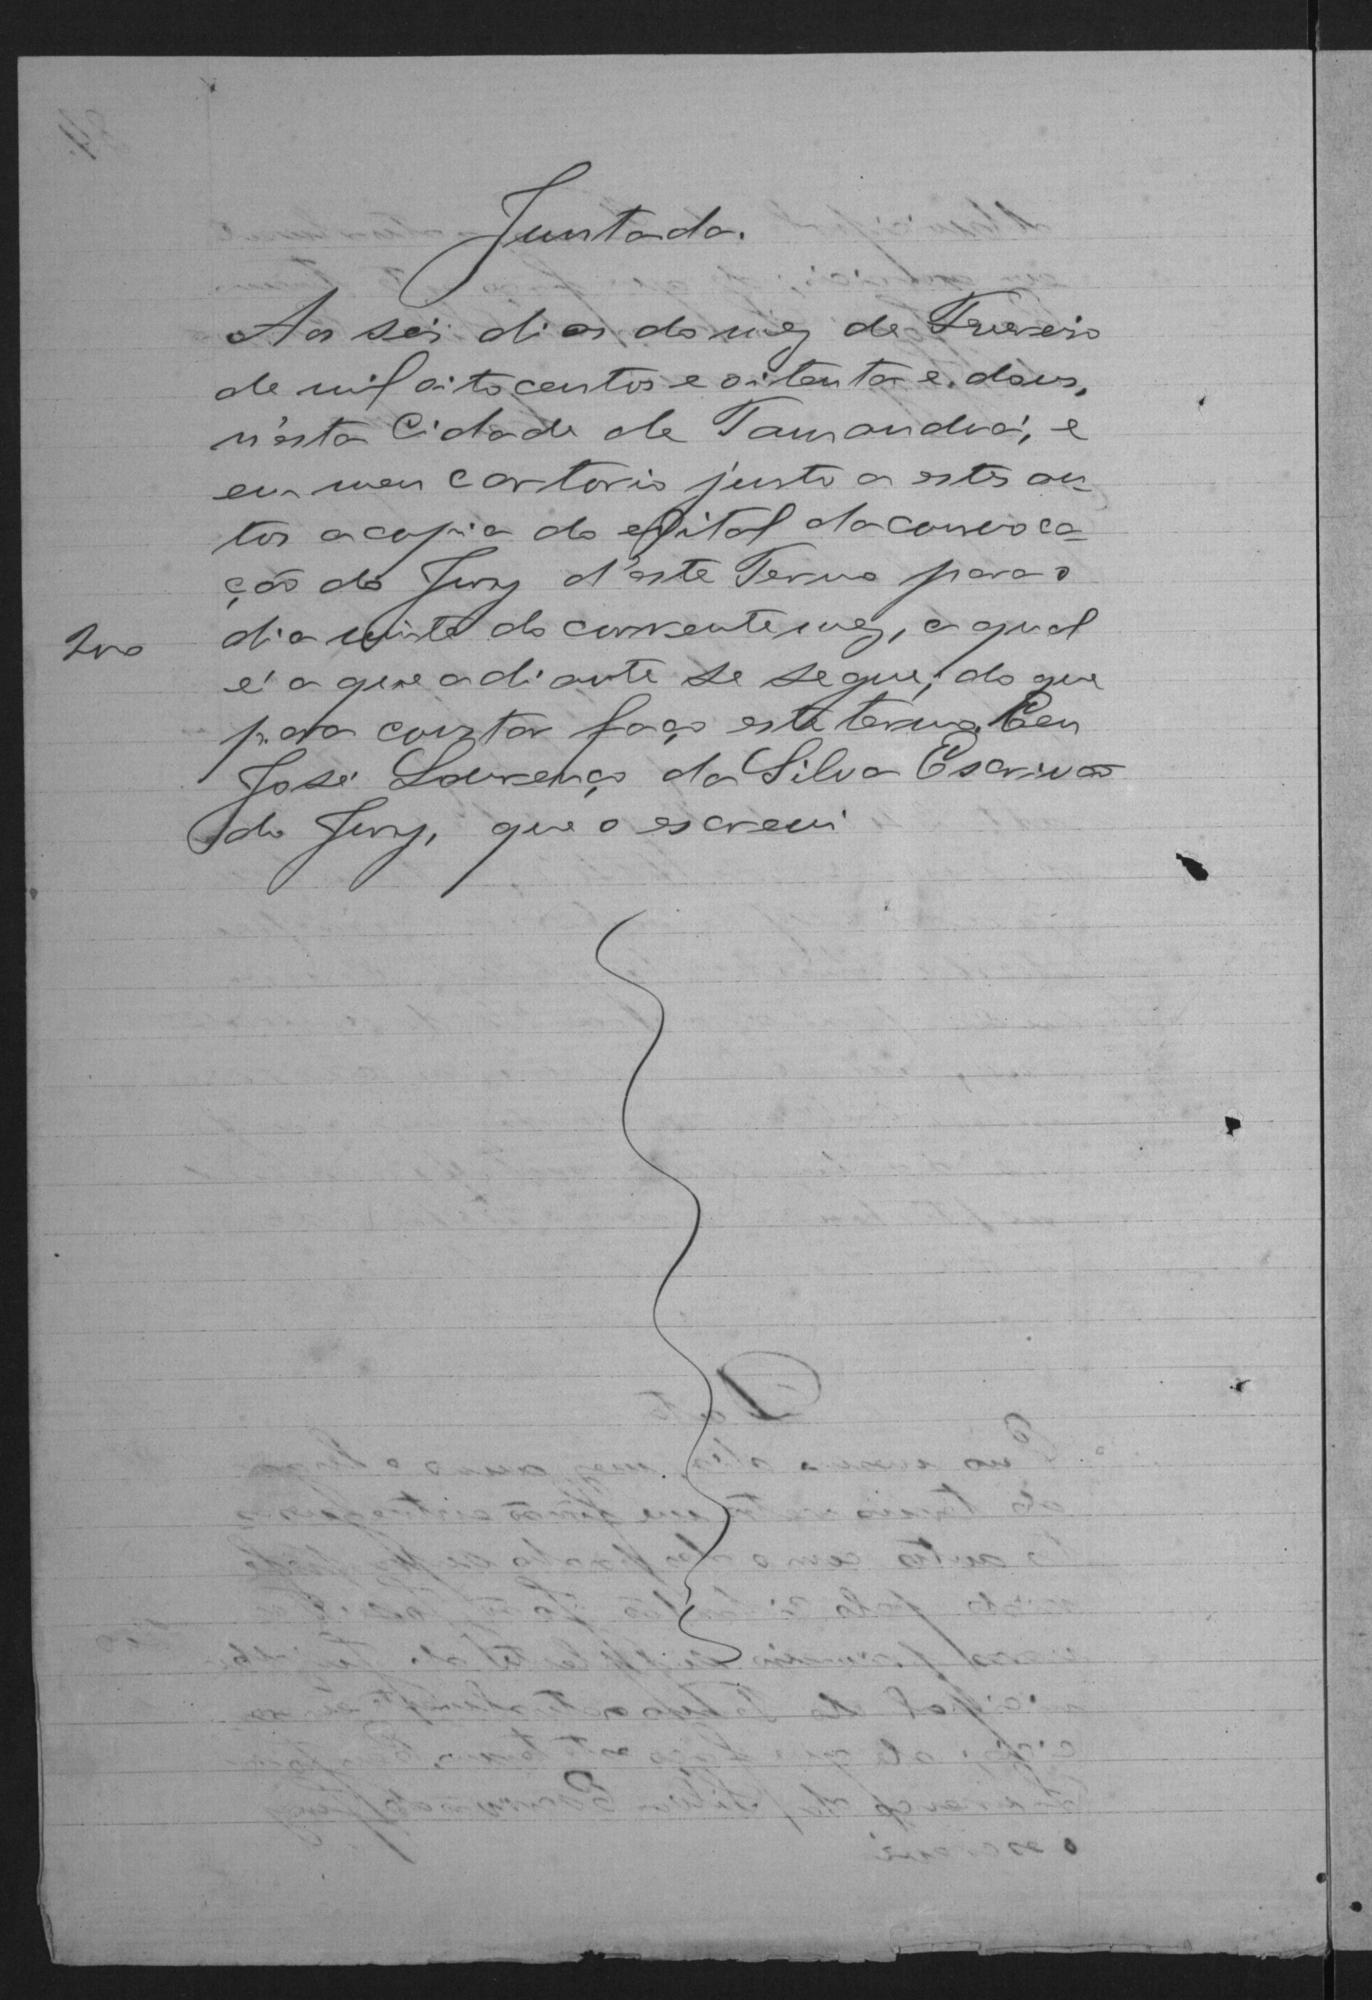 Juntada.
Aos seis dias do mez de Fevereiro
de mil oitocentos e oitenta e dous,
n'esta Cidade de Tamanduá, e
em meu cartorio junto a estes au-
tos a copia do edital da convoca-
ção do Jury d'este Termo para o
dia vinte do corrente mez, a qual
é a que adiante se segue; do que
para constar faço este termo. Eeu
José Lourenço da Silva Escrivão
do Jury, que o escrevi